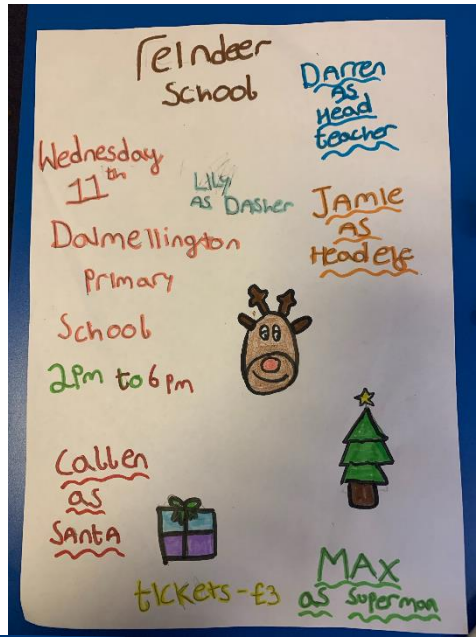 reindeer
School
Darren
as
Head
teacher
Wednesday
11th
Lily
as Dasher
Jamie
as
Head elf
Dalmellington
Primary
School
2pm to 6pm
Callen
as
Santa
tickets - £3
Max
as Superman